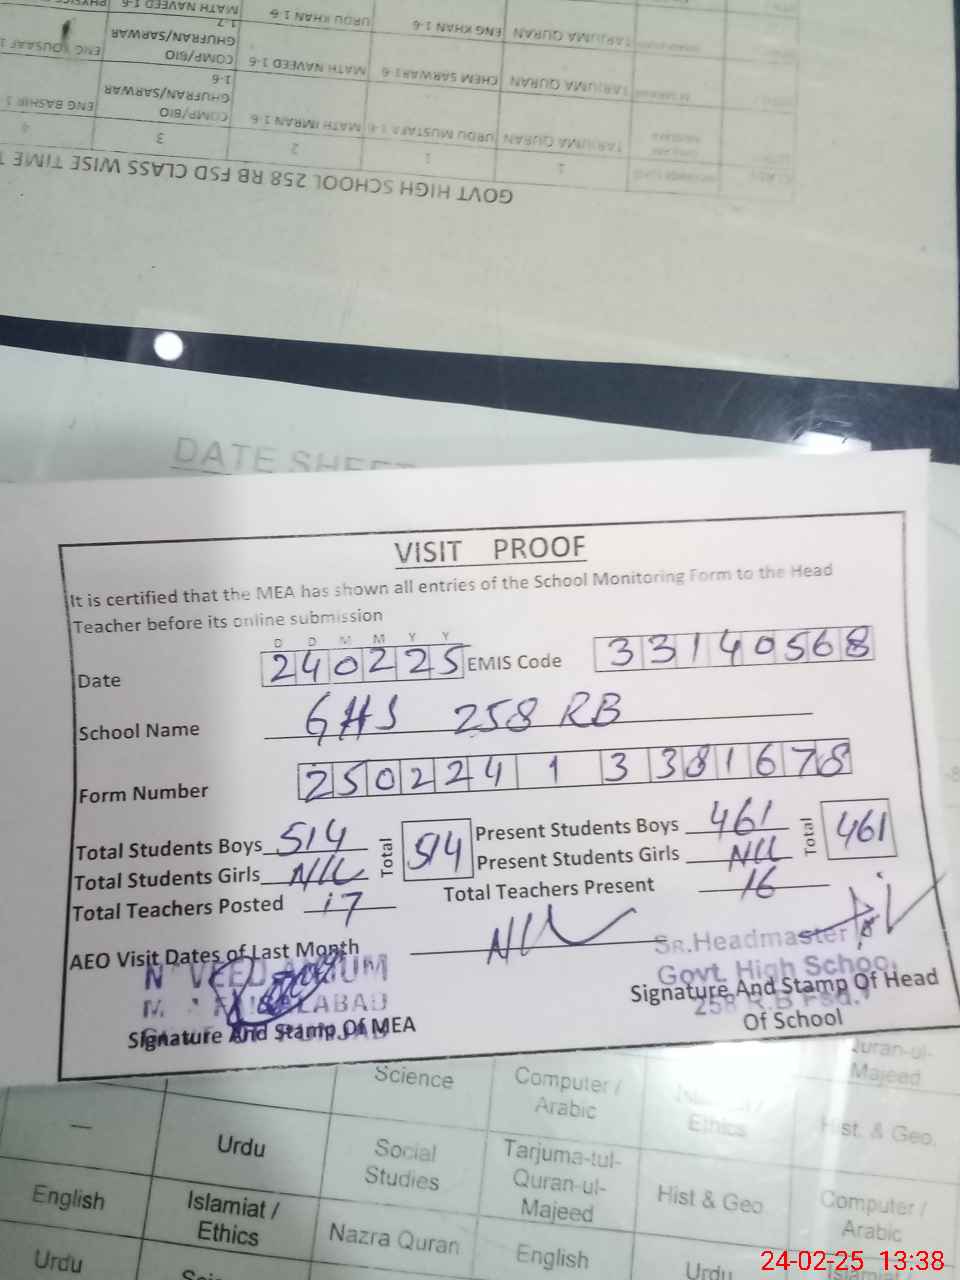 MATH NAVEED 1-6
URDU KHAN 1-6
ENG KHAN 1-6
TARJUMA QURAN
COMP/BIO
GHUFRAN/SARWAR
1-7
MATH NAVEED 1-6
CHEM SARWAR 1-6
TARJUMA QURAN
ENG BASHIR
COMP/BIO
GHUFRAN/SARWAR
1-6
MATH IMRAN 1-6
URDU MUSTAFA 1-6
TARJUMA QURAN
4
3
2
1
GOVT HIGH SCHOOL 258 RB FSD CLASS WISE TIME
DATE SHEET
VISIT PROOF
It is certified that the MEA has shown all entries of the School Monitoring Form to the Head
Teacher before its online submission
D D M M Y Y
Date 240225 EMIS Code 33140568
School Name GHS 258 RB
Form Number 250224 1 3 381678
Total Students Boys 514 Total 514 Present Students Boys 461 Total 461
Total Students Girls Nil Present Students Girls Nil
Total Teachers Posted 17 Total Teachers Present 16
AEO Visit Dates of Last Month Nil
SR.Headmaster
Govt. High School
258 R.B Fsd.
Signature And Stamp Of MEA
Signature And Stamp Of Head
Of School
Science Computer / Arabic Ethics Quran-ul-Majeed
— Urdu Social Studies Tarjuma-tul-Quran-ul-Majeed Hist & Geo Hist. & Geo.
English Islamiat / Ethics Nazra Quran English Urdu Computer / Arabic
Urdu
24-02-25 13:38